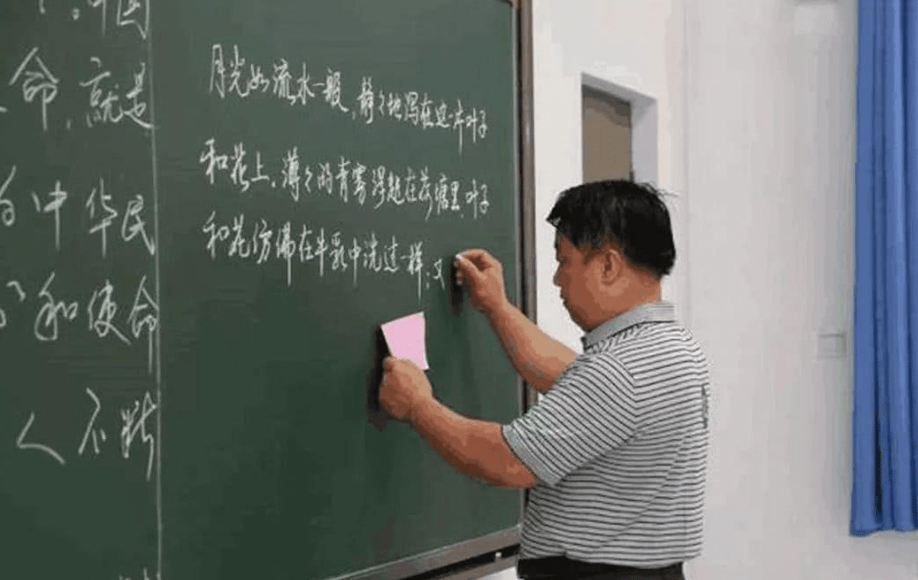 中国
命,就是
的中华民
和使命
人不断
月光如流水一般,静々地泻在这一片叶子
和花上。薄々的青雾浮起在荷塘里。叶子
和花仿佛在牛乳中洗过一样;又